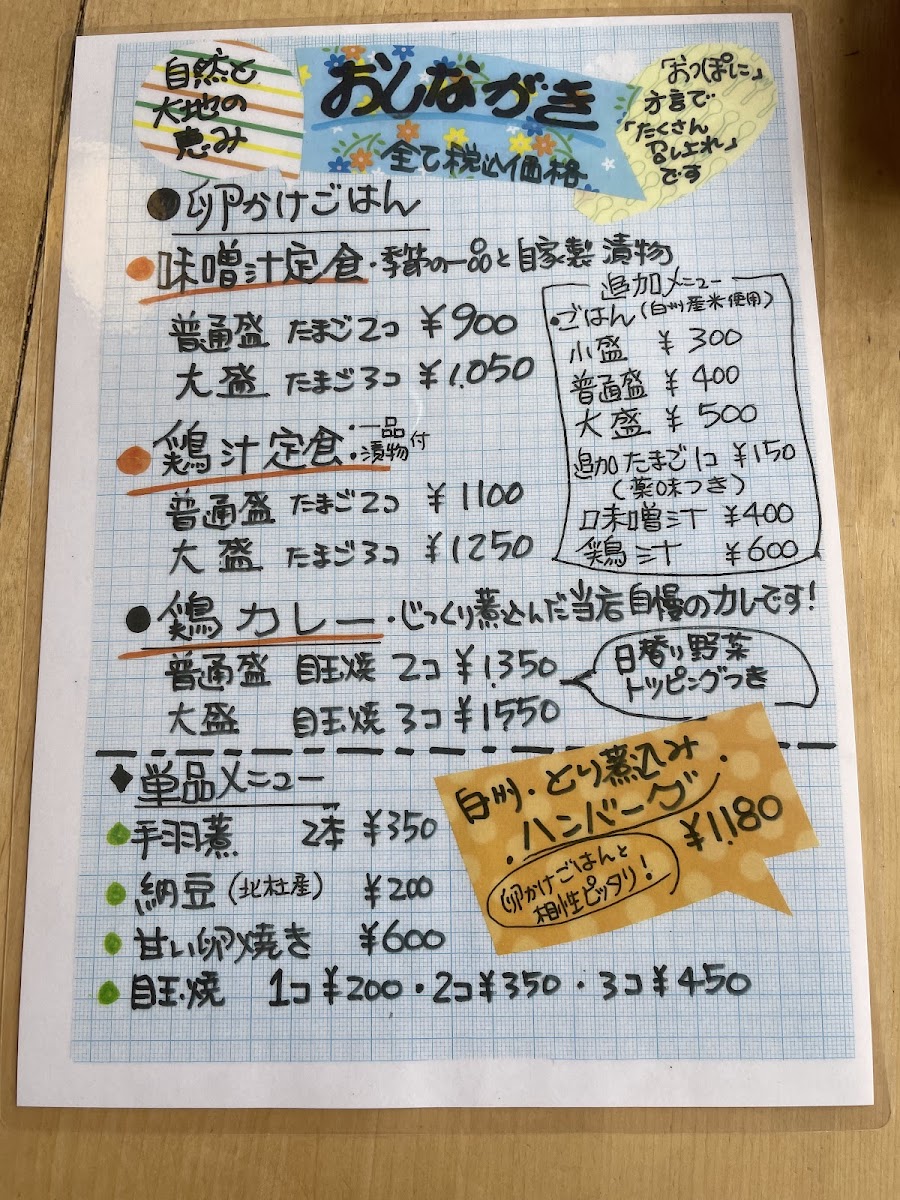 自然と
大地の
恵み
おしながき
全て税込価格
「おっぽに」
方言で
「たくさん
召し上れ」
です
●卵かけごはん
●味噌汁定食・季節の一品と自家製漬物
普通盛 たまご2コ ¥900
大盛 たまご3コ ¥1.050
追加メニュー
・ごはん(白州産米使用)
小盛 ¥300
普通盛 ¥400
大盛 ¥500
追加たまご1コ ¥150
(薬味つき)
味噌汁 ¥400
鶏汁 ¥600
●鶏汁定食・一品・漬物付
普通盛 たまご2コ ¥1100
大盛 たまご3コ ¥1250
●鶏カレー・じっくり煮込んだ当店自慢のカレーです!
普通盛 目玉焼 2コ ¥1.350
大盛 目玉焼 3コ ¥1550
日替り野菜
トッピングつき
◆単品メニュー
●手羽煮 2本 ¥350
●納豆(北杜産) ¥200
●甘い卵焼き ¥600
●目玉焼 1コ¥200・2コ¥350・3コ¥450
白州・とり煮込み
・ハンバーグ・
¥1.180
卵かけごはんと
相性ピッタリ!